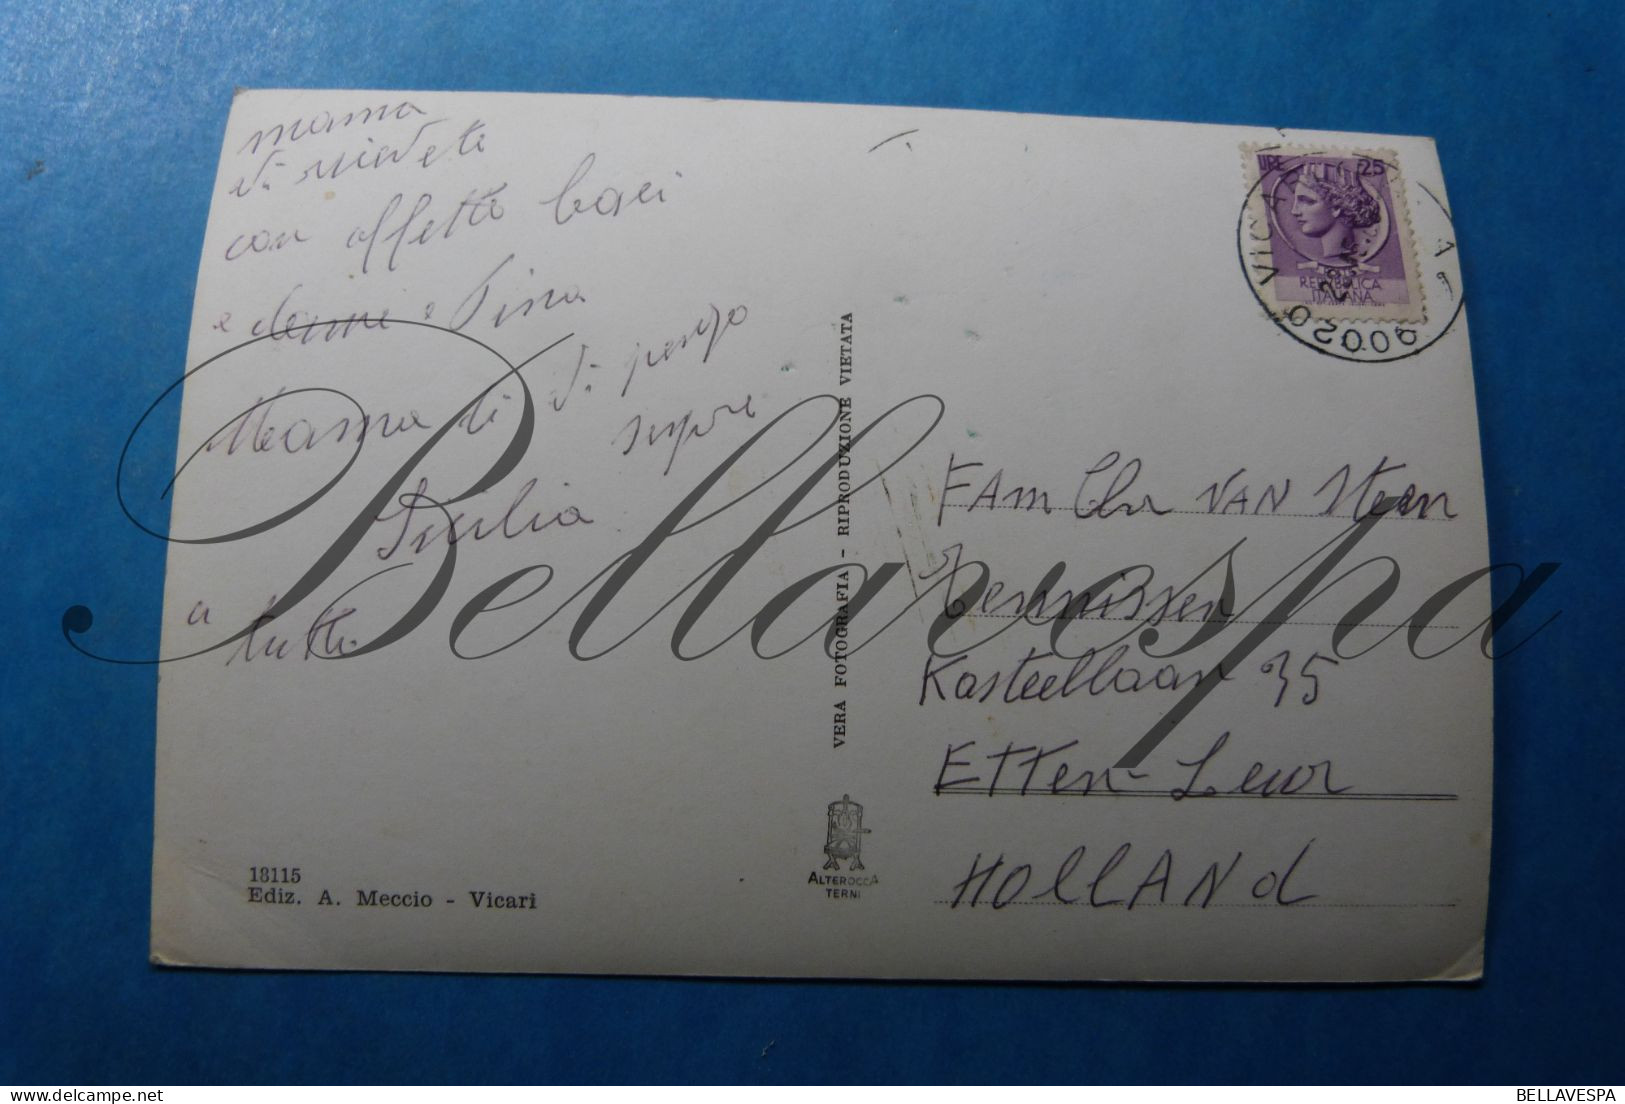 mama
di
con affetto baci
e e Pina
Mama ti di penso
sempre
Giulia
a tutti
18115
Ediz. A. Meccio - Vicari
VERA FOTOGRAFIA - RIPRODUZIONE VIETATA
ALTEROCCA
TERNI
LIRE 25
REPVBBLICA
ITALIANA
VICARI
90020
FAM Chr VAN Steen
Tennissen
Kasteellaan 35
ETTen-Leur
HOLLANd
Bellavespa
BELLAVESPA